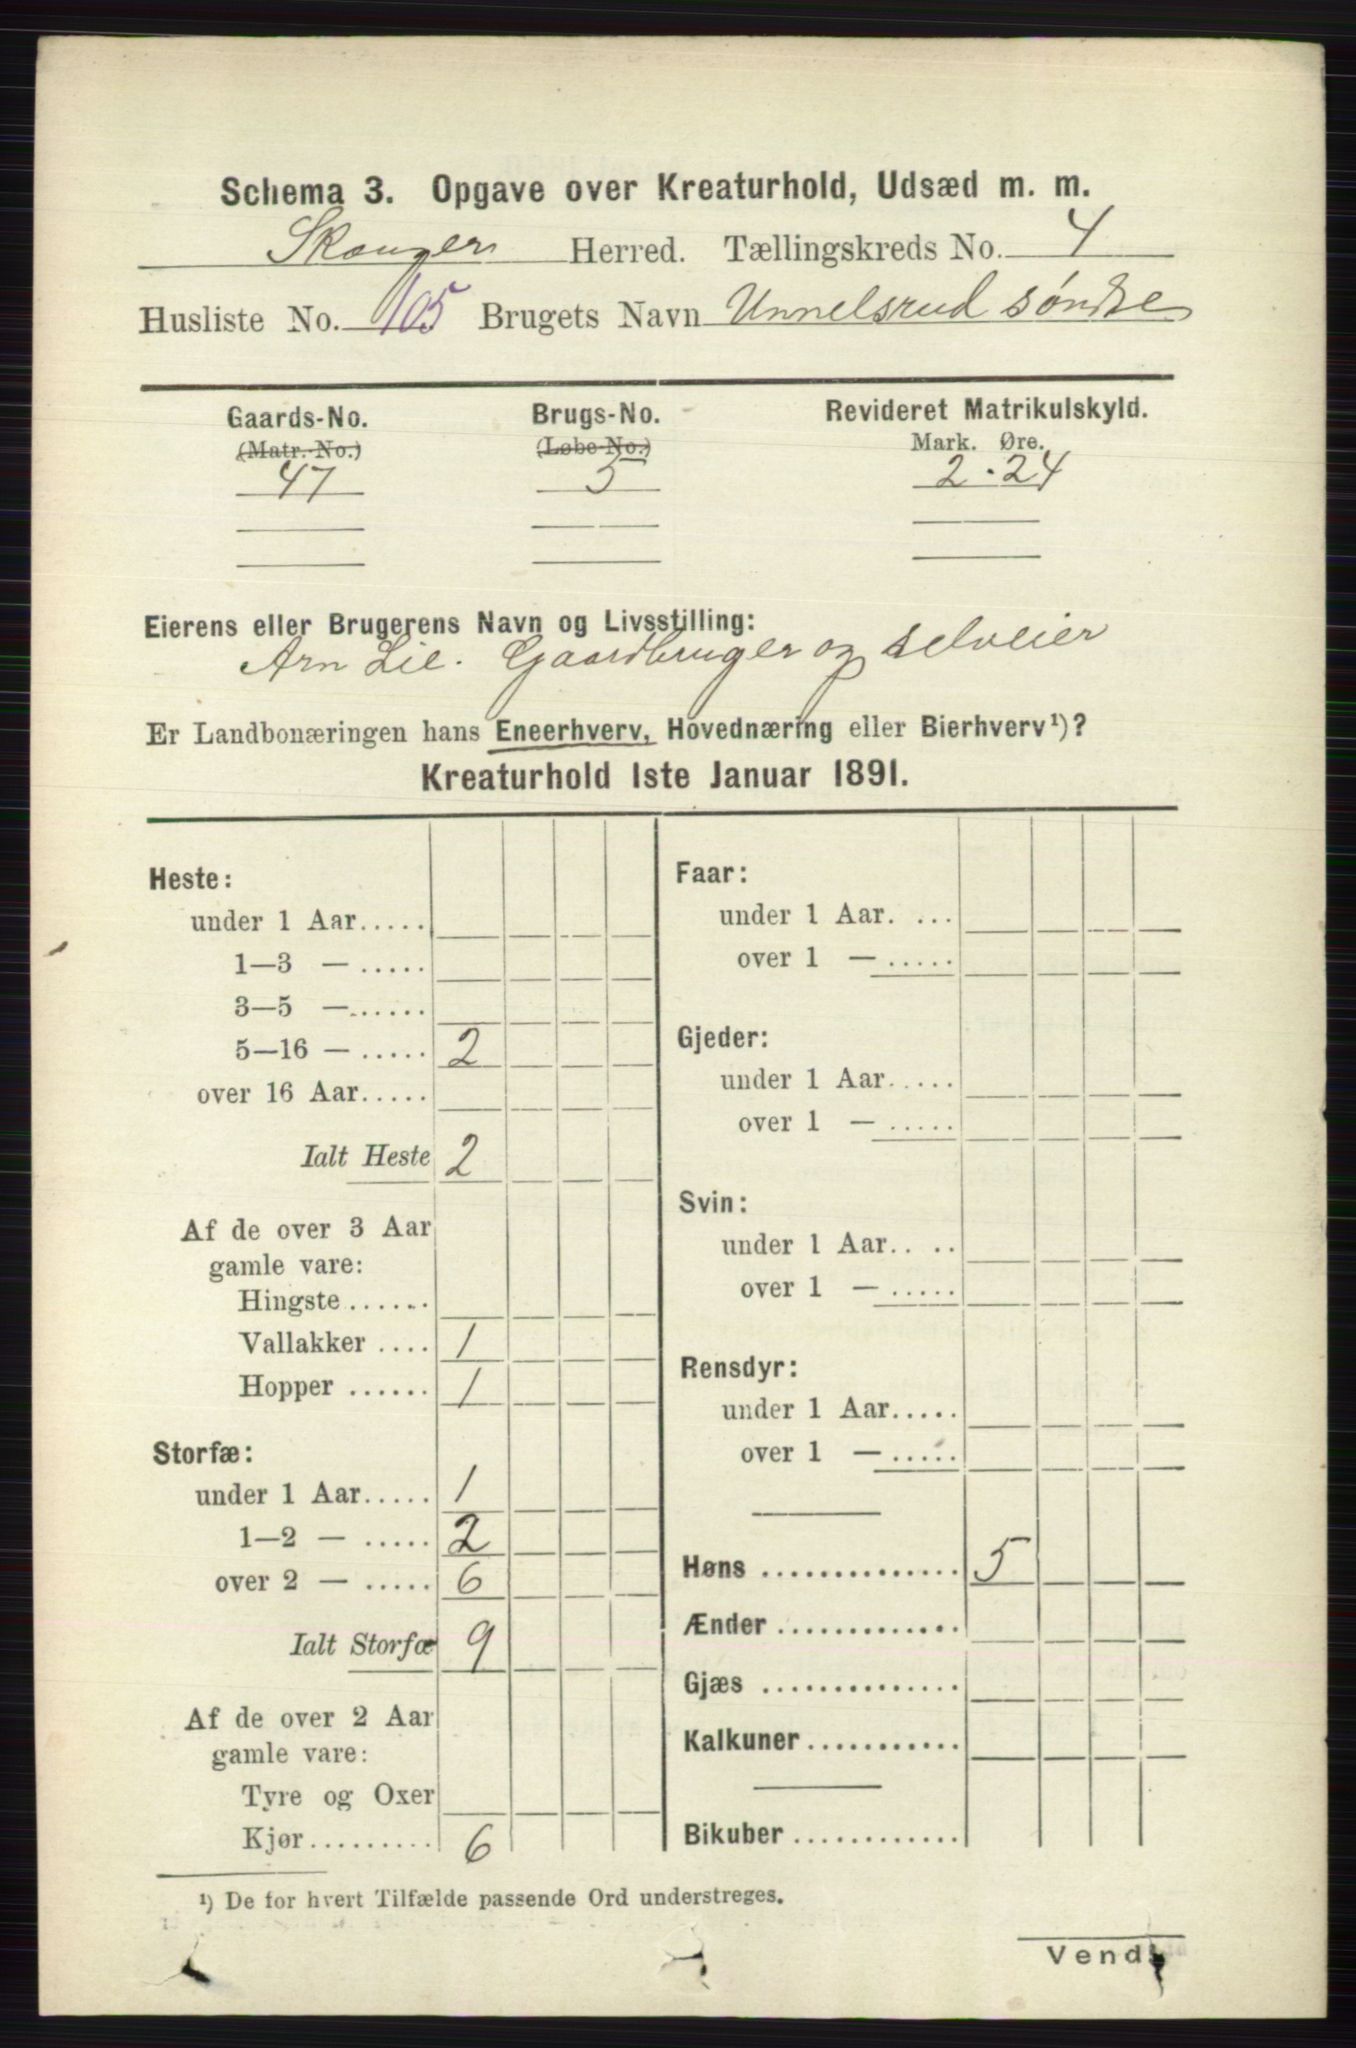 Schema 3. Opgave over Kreaturhold, Udsæd m. m.
Skouger Herred. Tællingskreds No. 4
Husliste No. 105 Brugets Navn Unnelsrud søndre
Gaards-No. Brugs-No. Revideret Matrikulskyld.
(Matr.-No.) (Løbe-No.) Mark. Øre.
47 5 2.24
Eierens eller Brugerens Navn og Livsstilling:
Arn Lie. Gaardbruger og selveier
Er Landbonæringen hans Eneerhverv, Hovednæring eller Bierhverv¹)?
Kreaturhold 1ste Januar 1891.
Heste:
under 1 Aar.....
1—3 — .....
3—5 —......
5—16 — ..... 2
over 16 Aar.....
Ialt Heste 2
Af de over 3 Aar
gamle vare:
Hingste......
Vallakker .... 1
Hopper ...... 1
Storfæ:
under 1 Aar..... 1
1—2 — ..... 2
over 2 — ..... 6
Ialt Storfæ 9
Af de over 2 Aar
gamle vare:
Tyre og Oxer
Kjør......... 6
Faar:
under 1 Aar. ...
over 1 — .....
Gjeder:
under 1 Aar.....
over 1 — .....
Svin:
under 1 Aar.. ..
over 1 — .....
Rensdyr:
under 1 Aar.....
over 1 — .....
Høns .............. 5
Ænder .............
Gjæs ..............
Kalkuner...........
Bikuber ............
¹) De for hvert Tilfælde passende Ord understreges.
Vend!